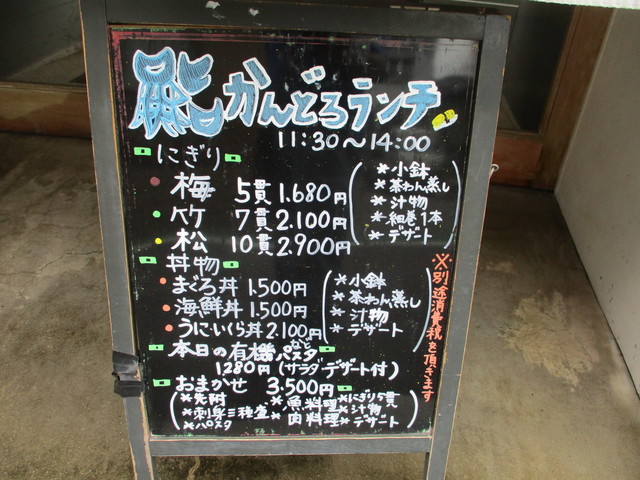 鮨かんどろランチ
11:30〜14:00
にぎり
梅 5貫 1.680円
竹 7貫 2.100円
松 10貫 2.900円
*小鉢
*茶わん蒸し
*汁物
*細巻1本
*デザート
丼物
まぐろ丼 1.500円
海鮮丼 1.500円
うにいくら丼 2.100円
*小鉢
*茶わん蒸し
*汁物
*デザート
本日の有機パスタ
1280円(サラダデザート付)
おまかせ 3.500円
*先附 *魚料理 *にぎり5貫
*刺身三種盛 *汁物
*パスタ *肉料理 *デザート
※別途消費税を頂きます